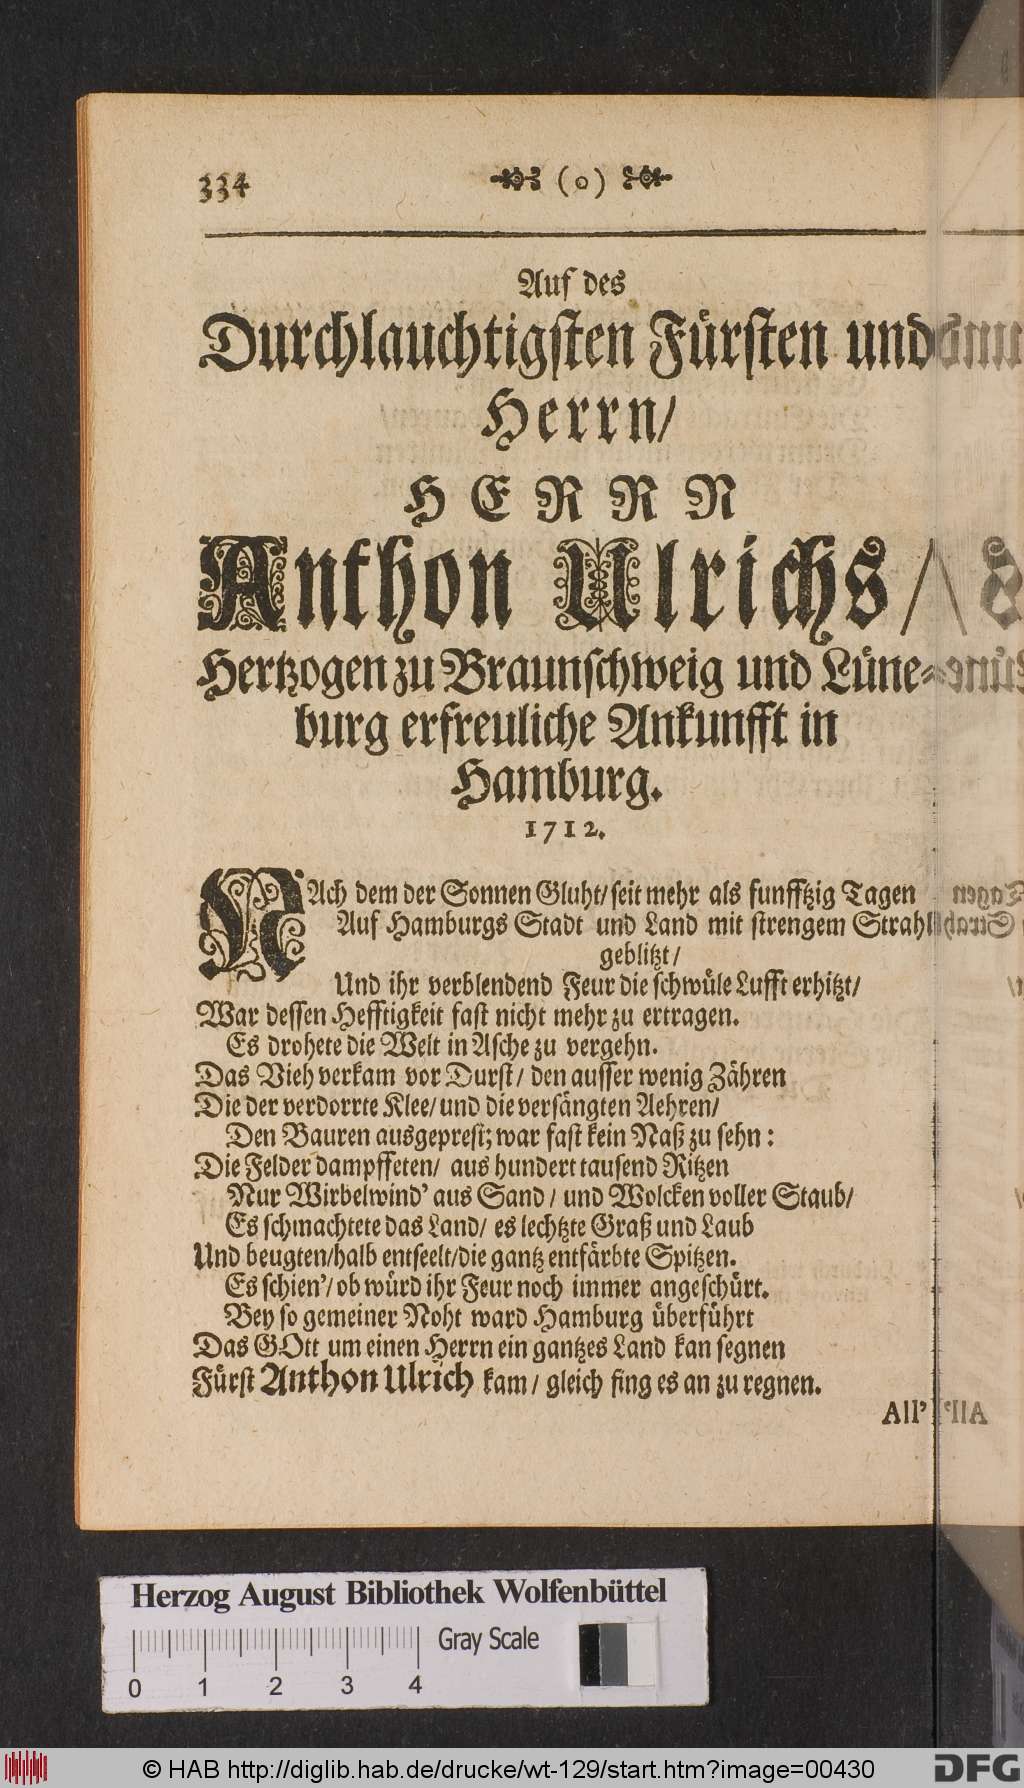 334 (o)
Auf des
Durchlauchtigsten Fürsten und
Herrn/
HERRN
Anthon Ulrichs/
Hertzogen zu Braunschweig und Lüne-
burg erfreuliche Ankunfft in
Hamburg.
1712.
NAch dem der Sonnen Gluht/ seit mehr als funfftzig Tagen
Auf Hamburgs Stadt und Land mit strengem Strahl
geblitzt/
Und ihr verblendend Feur die schwüle Lufft erhitzt/
War dessen Hefftigkeit fast nicht mehr zu ertragen.
Es drohete die Welt in Asche zu vergehn.
Das Vieh verkam vor Durst/ den ausser wenig Zähren
Die der verdorrte Klee/ und die versängten Aehren/
Den Bauren ausgeprest; war fast kein Naß zu sehn:
Die Felder dampffeten/ aus hundert tausend Ritzen
Nur Wirbelwind' aus Sand/ und Wolcken voller Staub/
Es schmachtete das Land/ es lechtzte Graß und Laub
Und beugten/halb entseelt/die gantz entfärbte Spitzen.
Es schien'/ ob würd ihr Feur noch immer angeschürt.
Bey so gemeiner Noht ward Hamburg überführt
Das GOtt um einen Herrn ein gantzes Land kan segnen
Fürst Anthon Ulrich kam/ gleich fing es an zu regnen.
All'
Herzog August Bibliothek Wolfenbüttel
Gray Scale
0 1 2 3 4
© HAB http://diglib.hab.de/drucke/wt-129/start.htm?image=00430
DFG